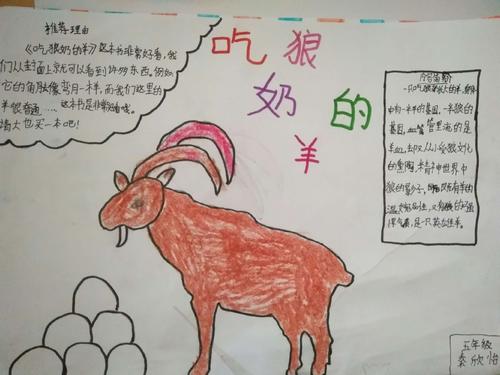 推荐理由
《吃狼奶的羊》这本书非常好看,我
们从封面上就可以看到许多东西。例如
它的角就像弯月一样,而我们这里的
羊很普通……这本书是非常
大也买一本吧!
吃狼
奶的
羊
一只吃狼奶长大的羊,
中有一半羊的基因,一半狼的
基因,血管里流的是
羊血,却又从小受狼文化
的熏陶,精神世界中
狼的影子。既有羊的
温
悍气质,是一只英雄羊。
五年级
秦欣怡